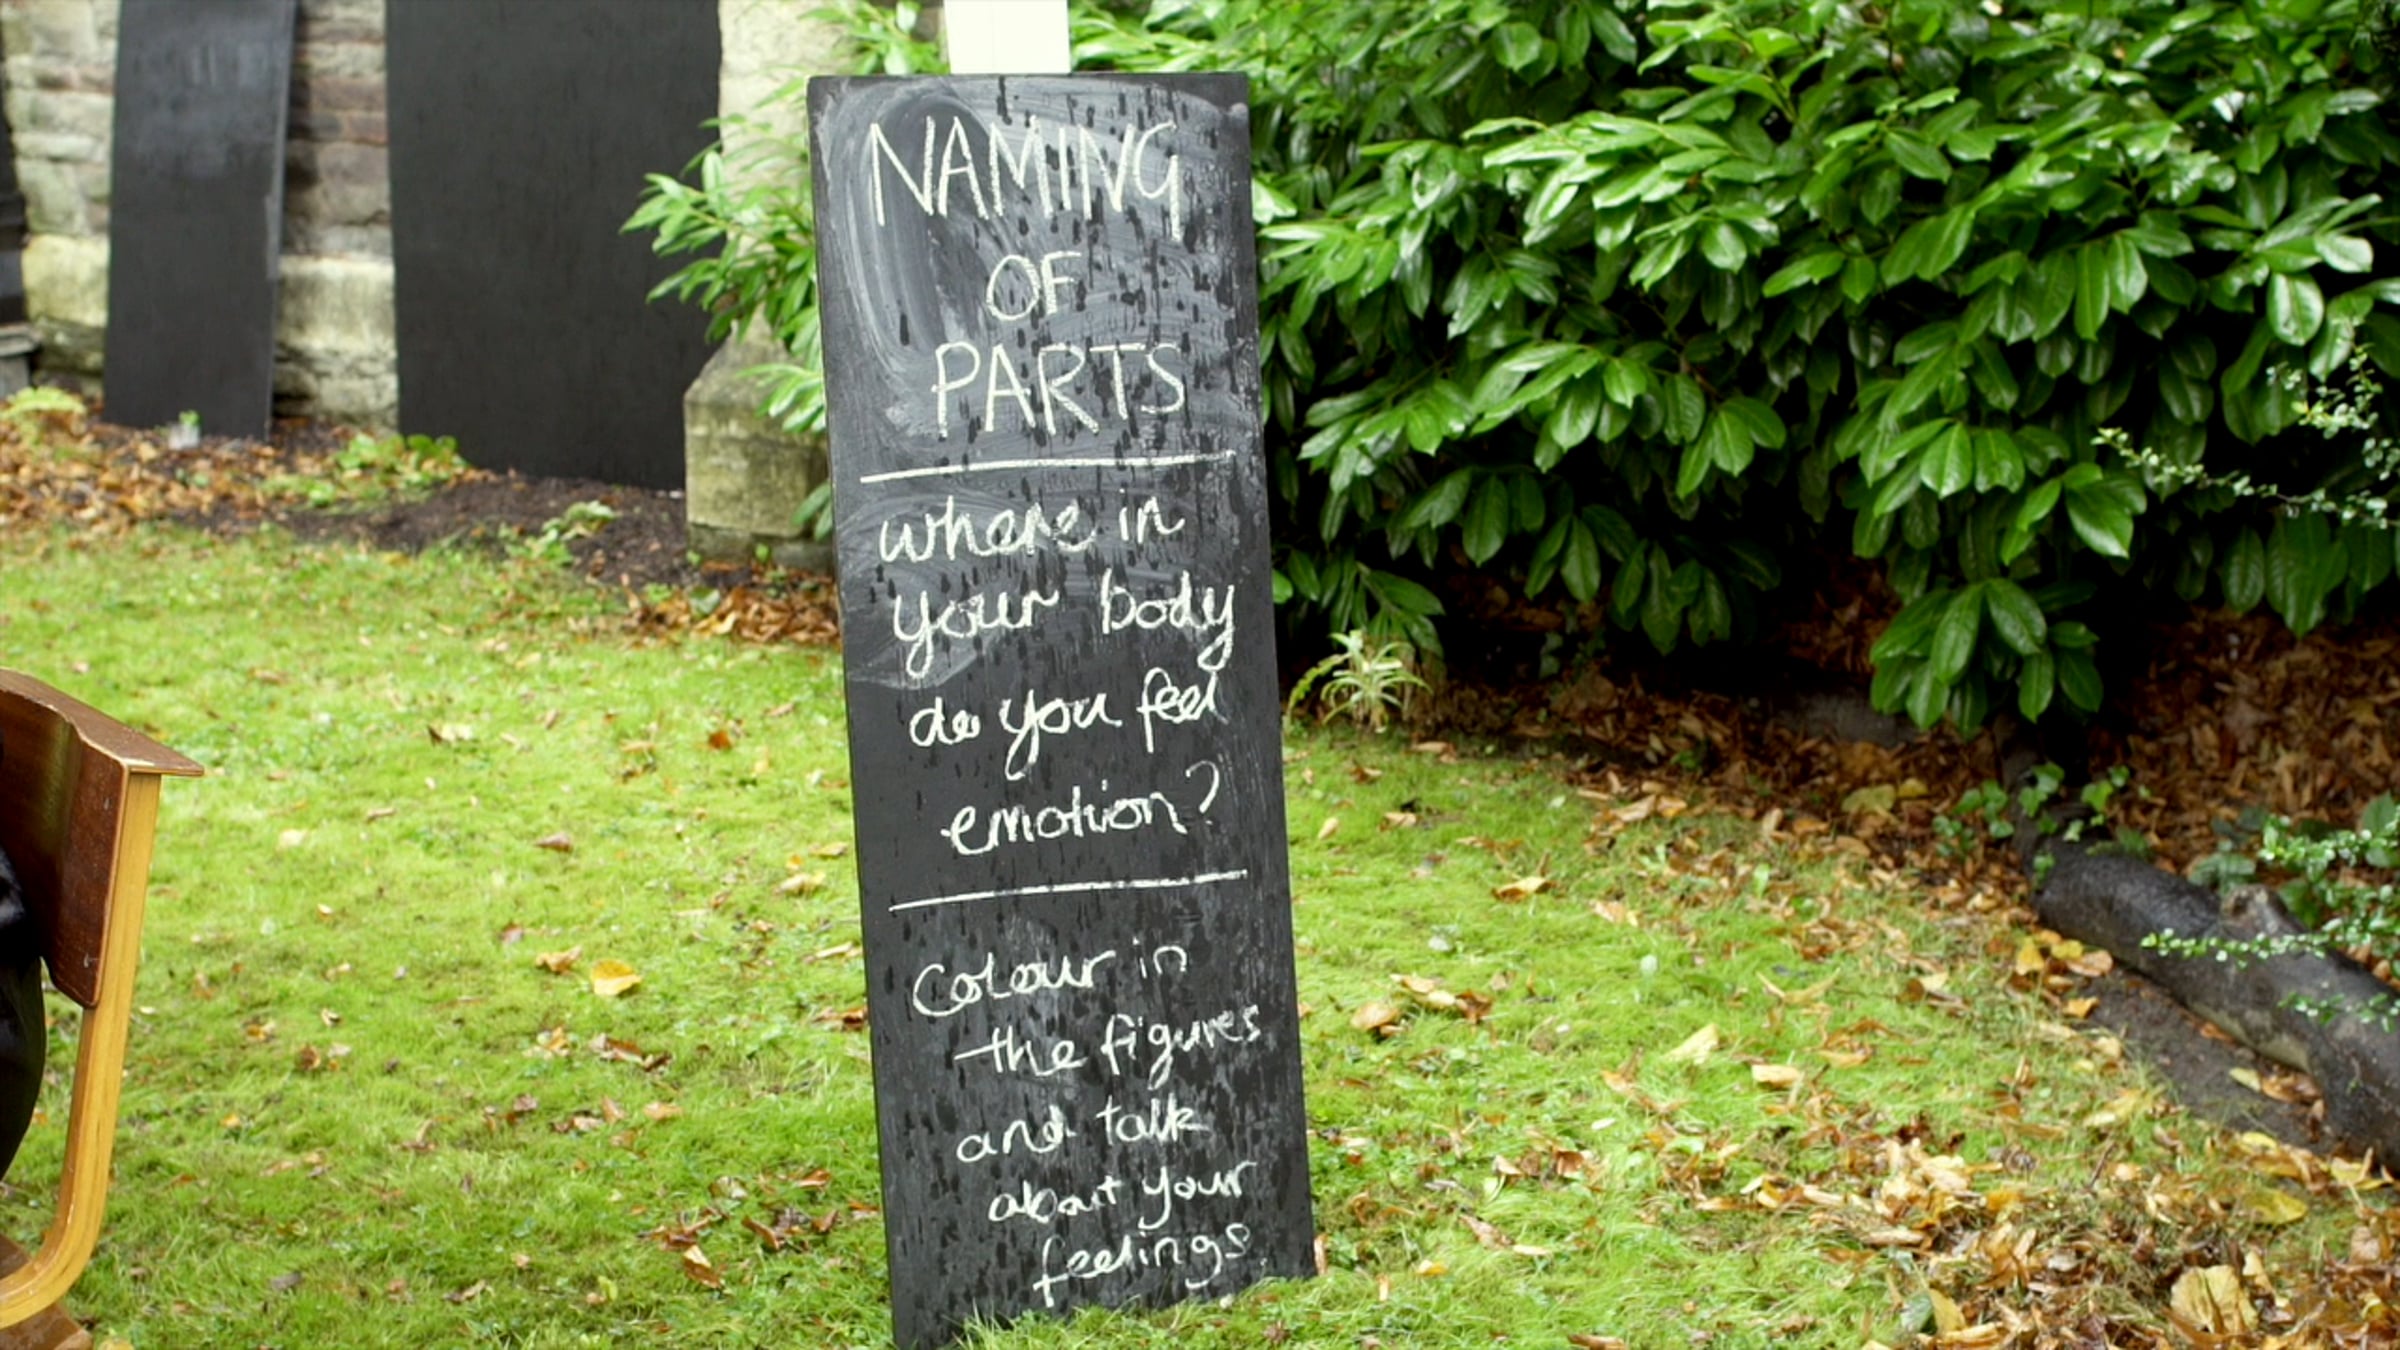 NAMING
OF
PARTS
where in
your body
do you feel
emotion?
Colour in
the figures
and talk
about your
feelings.